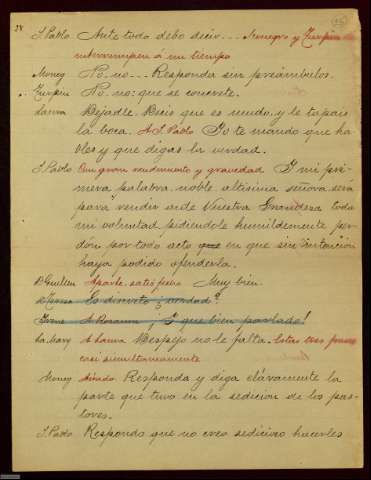 S. Pablo Ante todo debo decir... Monegro y Turpin
interrumpen á un tiempo
Moneg No, no... Responda sin preámbulos.
Turpin No, no: que se concrete.
Laura Dejadle. Decis que es mudo, y le tapais
la boca. A S. Pablo Yo te mando que ha-
bles y que digas la verdad.
S. Pablo Con gran rendimiento y gravedad Y mi pri-
mera palabra, noble, altísima señora, será
para rendir ante Vuestra Grandeza toda
mi voluntad pidiendole humildemente per-
dón por todo acto en que sin intención
haya podido ofenderla.
D Guillen Aparte, satisfecho Muy bien.
Es discreto ¿verdad?
A Rosaura ¡Y que bien parlado!
A Laura Despejo no le falta. Estas tres frases
casi simultaneamente
Moneg airado Responda y diga claramente la
parte que tuvo en la sedicion de los pas-
tores.
S. Pablo Respondo que no creo sedicioso hacerles